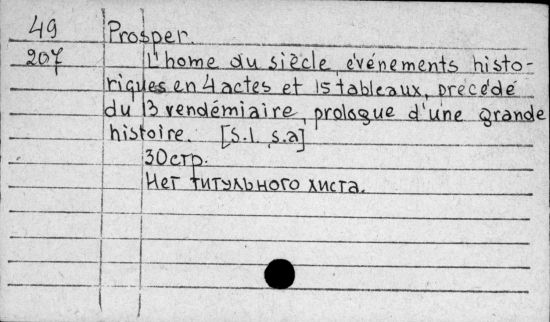 49 Prosper.
207 L'home du siècle, événements histo-
riques en 4 actes et 15 tableaux, précédé
du 13 vendémiaire, prologue d'une grande
histoire. [S.l. s.a]
30 стр.
Нет титульного листа.